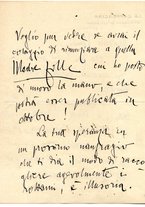 Voglio pur vedere se avrai il
coraggio di rinunziare a quella
Madre folle cui ho posto
di nuovo la mano, e che
potrà esser pubblicata in
ottobre!
La tua speranza in
un prossimo naufragio
che ti dia il modo di racco-
gliere agevolmente i
rottami, è illusoria.